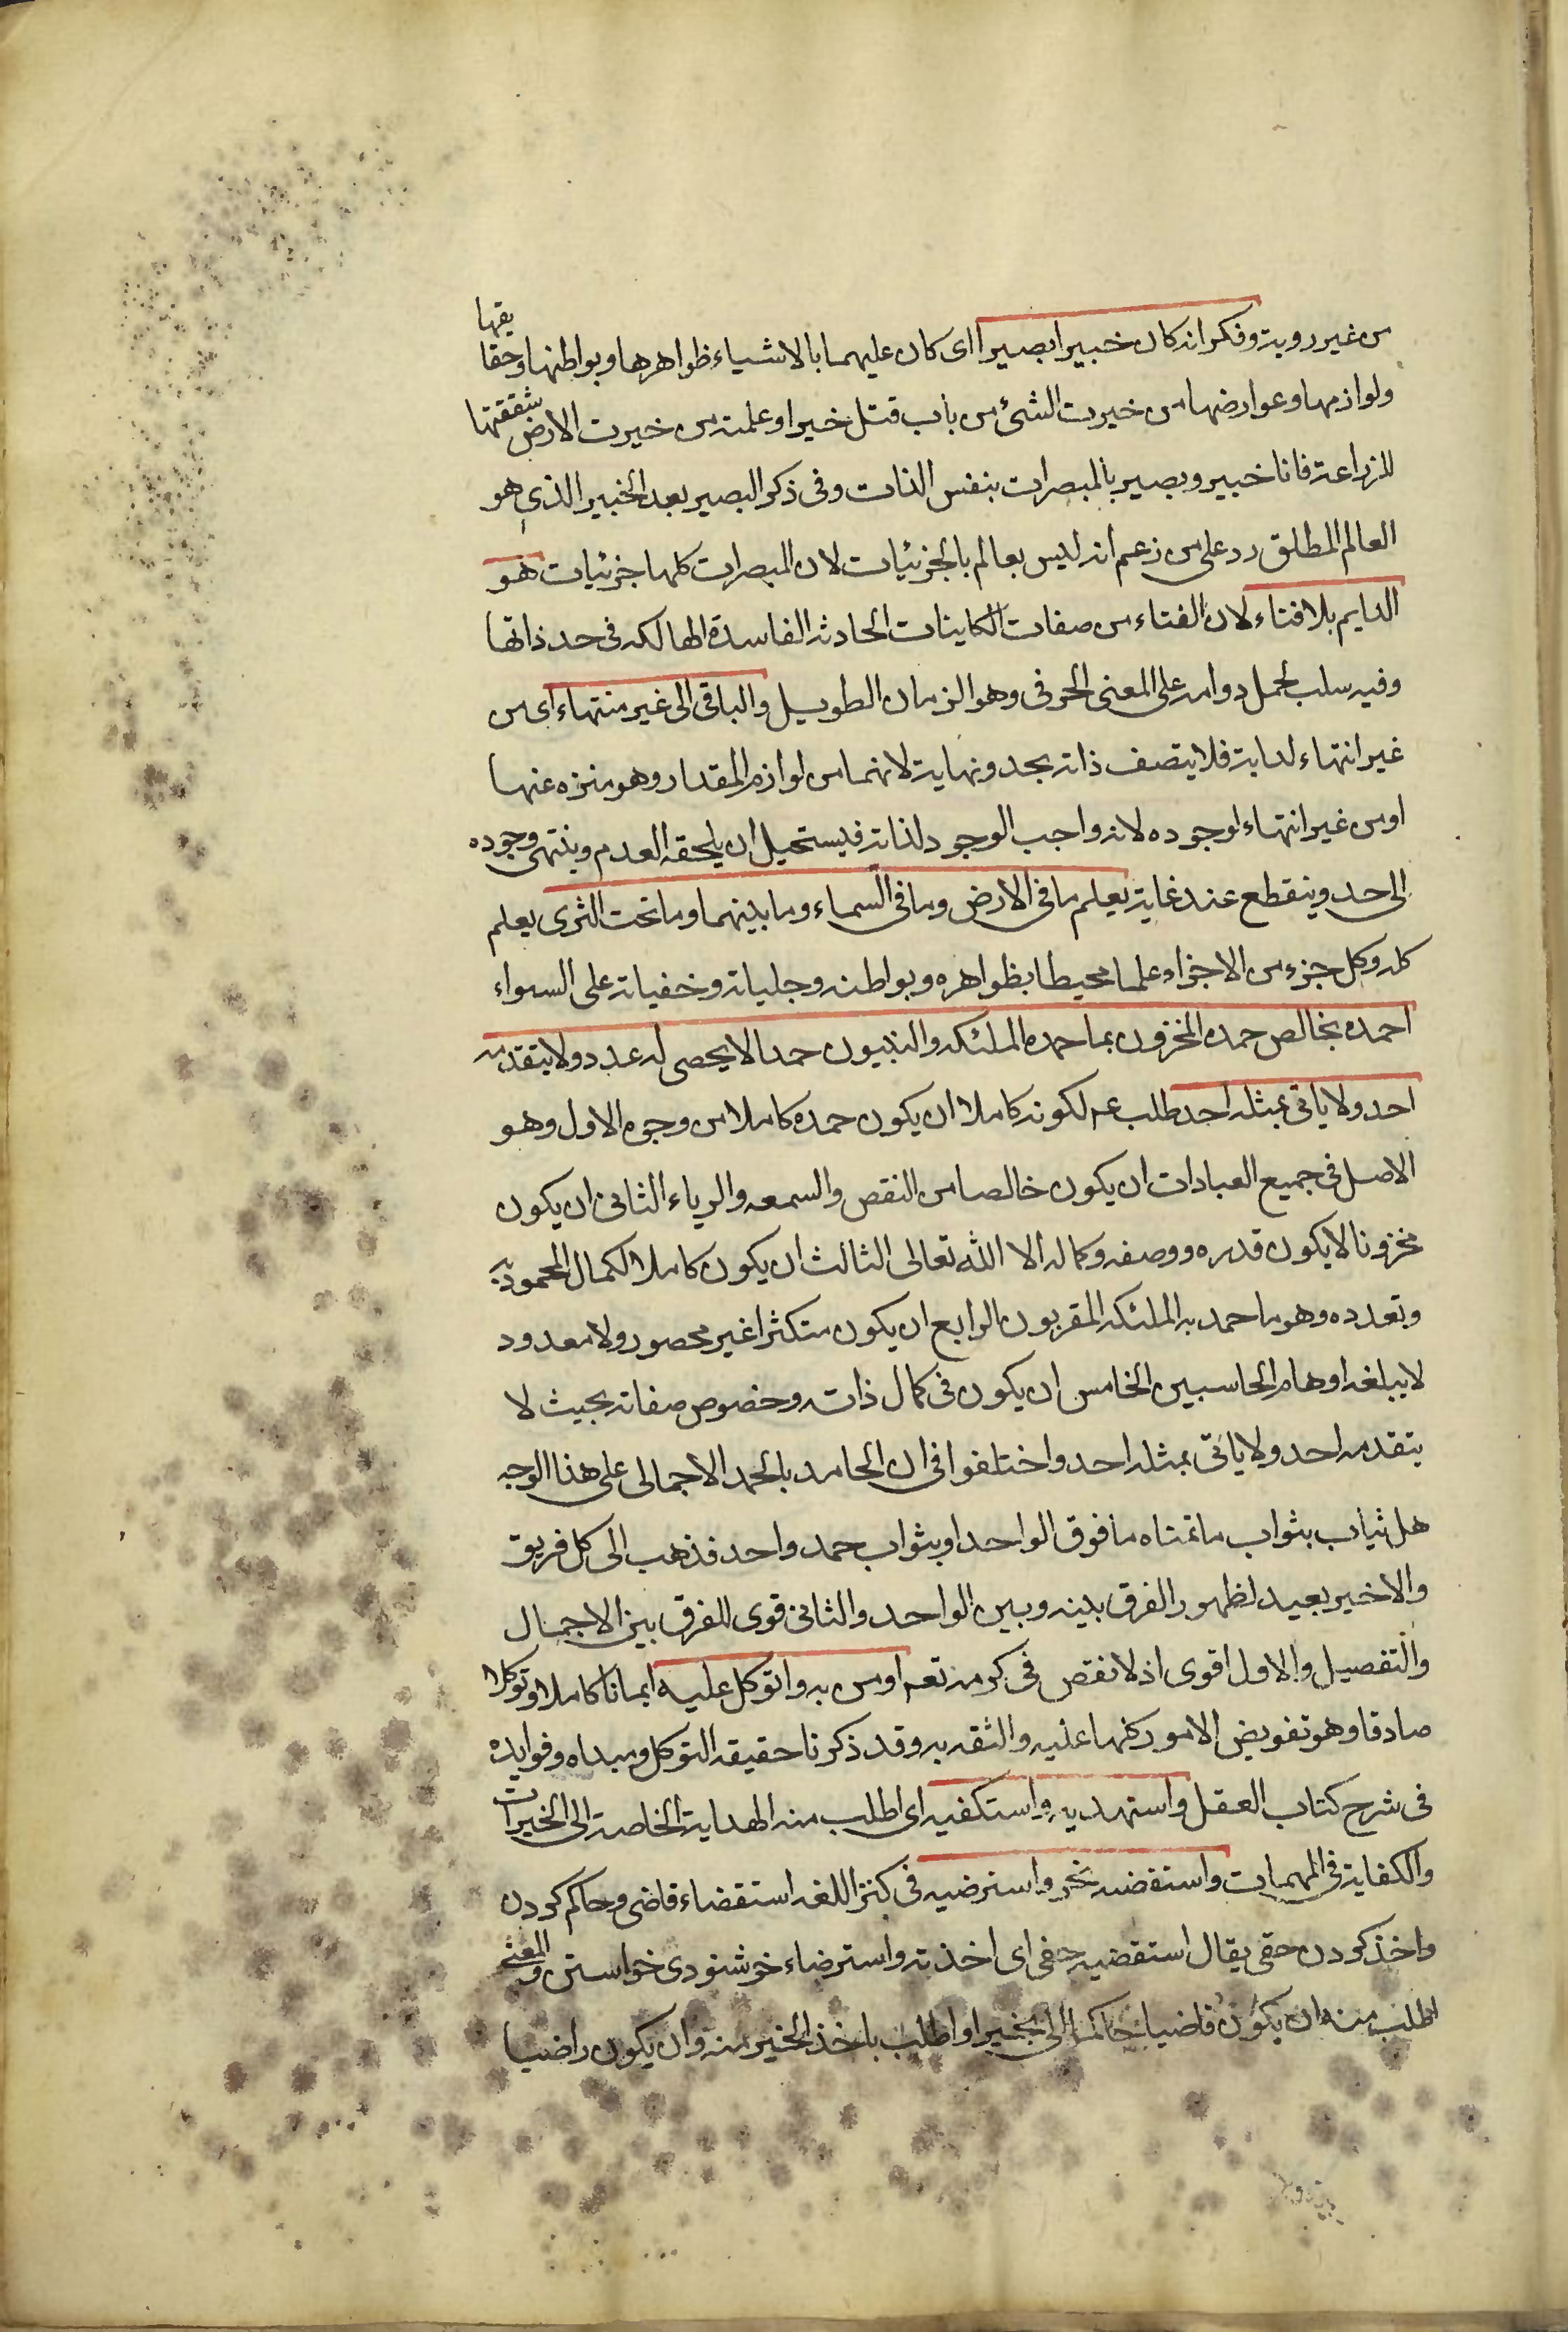 من غير روية وفكر انه كان خبيرا بصيرا اى كان عليهما بالاشياء ظواهرها وبواطنها وحقايقها
ولوازمها وعوارضها من خبرت الشئ من باب قتل خبرا وعلمته من خبرت الارض شققتها
للزراعة فانا خبير وبصير بالمبصرات بنفس الذات وفى ذكر البصير بعد الخبير الذى هو
العالم المطلق رد على من زعم انه ليس بعالم بالجزئيات لان المبصرات كلها جزئيات هو
الدايم بلا فناء لان الفناء من صفات الكاينات الحادثه الفاسدة الهالكه فى حد ذاتها
وفيه سلب لحمل دوامه على المعنى الحرفى وهو الزمان الطويل والباقى الى غير منتهاء اى من
غير انتهاء لدايته فلا يتصف ذاته بحد ونهاية لانهما من لوازم المقدار وهو منزه عنها
او من غير انتهاء لوجوده لانه واجب الوجود لذاته فيستحيل ان يلحقه العدم وينتهى وجوده
الى حد وينقطع عند غاية يعلم ما فى الارض وما فى السماء وما بينهما وما تحت الثرى يعلم
كله وكل جزء من الاجزاء علما محيطا بظواهره وبواطنه وجلياته وخفياته على السواء
احمده بخالص حمده المخزون بما حمده الملئكه والنبيون حمدا لا يحصى له عدد ولا يتقدمه
احد ولا ياتى بمثله احد طلب عم لكونه كاملا ان يكون حمده كاملا من وجوه الاول وهو
الاصل فى جميع العبادات ان يكون خالصا من النقص والسمعه والرياء الثانى ان يكون
مخزونا لا يكون قدره ووصفه وكماله الا الله تعالى الثالث ان يكون كاملا لكمال المحمود به
وتعدده وهو ما حمد به الملئكه المقربون الرابع ان يكون متكثرا غير محصور ولا معدود
لا يبلغه اوهام الحاسبين الخامس ان يكون فى كمال ذاته وخصوص صفاته بحيث لا
يتقدمه احد ولا ياتى بمثله احد واختلفوا فى ان الحامد بالحمد الاجمالى على هذا الوجه
هل يثاب بثواب ما تمناه ما فوق الواحد او بثواب حمد واحد فذهب الى كل فريق
والاخير بعيد لظهور الفرق بينه وبين الواحد والثانى قوى للفرق بين الاجمال
والتفصيل والاول اقوى اذ لا نقص فى كرمه تعم اومن به واتوكل عليه ايمانا كاملا وتوكلا
صادقا وهو تفويض الامور كلها عليه والثقه به وقد ذكرنا حقيقه التوكل ومبداه وفوايده
فى شرح كتاب العقل واستهديه واستكفيه اى اطلب منه الهداية الخاصة الى الخيرات
والكفاية فى المهمات واستقضيه بخير واسترضيه فى كنز اللغه استقضاء قاضى وحاكم كردن
واخذ كردن حقى يقال استقضيه حقى اى اخذته واسترضاء خوشنودى خواستن والمعنى
اطلب منه ان يكون قاضيا حاكما الى بخير او اطلب باخذ الخير منه وان يكون راضيا